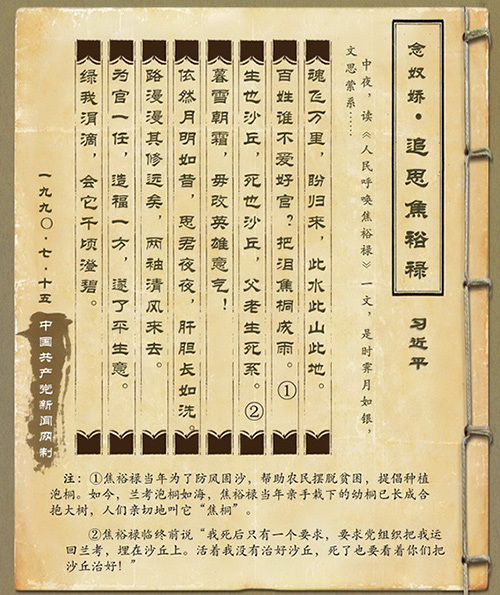 念奴娇·追思焦裕禄
习近平
中夜，读《人民呼唤焦裕禄》一文，是时霁月如银，
文思萦系……
魂飞万里，盼归来，此水此山此地。
百姓谁不爱好官？把泪焦桐成雨。①
生也沙丘，死也沙丘，父老生死系。②
暮雪朝霜，毋改英雄意气！
依然月明如昔，思君夜夜，肝胆长如洗。
路漫漫其修远矣，两袖清风来去。
为官一任，造福一方，遂了平生意。
绿我涓滴，会它千顷澄碧。
一九九〇·七·十五
中国共产党新闻网制
注：①焦裕禄当年为了防风固沙，帮助农民摆脱贫困，提倡种植
泡桐。如今，兰考泡桐如海，焦裕禄当年亲手栽下的幼桐已长成合
抱大树，人们亲切地叫它“焦桐”。
②焦裕禄临终前说“我死后只有一个要求，要求党组织把我运
回兰考，埋在沙丘上。活着我没有治好沙丘，死了也要看着你们把
沙丘治好！”